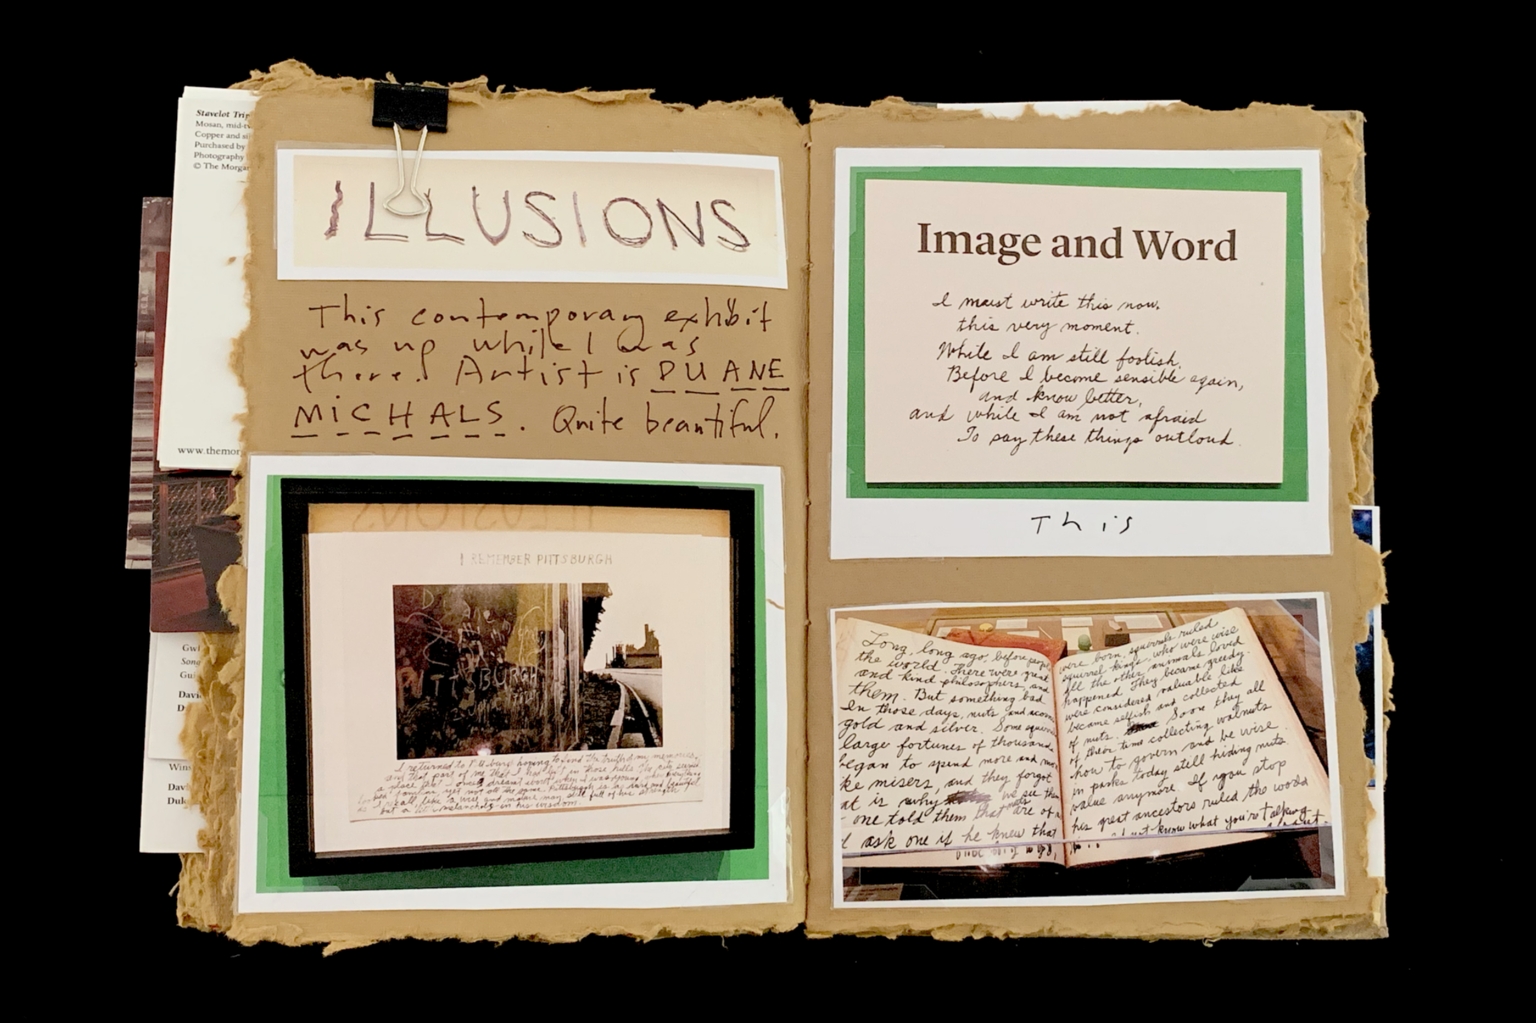 Stavelot Trip
Mosan, mid-tw
Copper and si
Purchased by
Photography
© The Morgan
www.themor
Gwl
Song
Gui
Davi
D
Wins
Davi
Duk
ILLUSIONS
This contemporary exhibit
was up while I was
there! Artist is DUANE
MICHALS. Quite beautiful.
ILLUSIONS
I REMEMBER PITTSBURGH
PITTSBURGH
I returned to Pittsburgh hoping to find the truth of my memories,
and that part of me that I had left in those hills. The city seemed
Image and Word
I must write this now,
this very moment.
While I am still foolish,
Before I become sensible again,
and know better,
and while I am not afraid
To say these things outloud.
This
Long, long ago, before people
the world. There were great
and kind philosophers, and
them. But something bad
In those days, nuts and acorns
gold and silver. Some squirrels
large fortunes of thousands
began to spend more and more
ke misers, and they forgot
at is why we see them
one told them that nuts are of n
I ask one if he knew that
were born, squirrels ruled
squirrel kings, who were wise
all the other animals loved
happened. They became greedy.
were considered valuable like
became selfish and collected
of nuts. Soon they all
of their time collecting walnuts
how to govern and be wise
in parks today still hiding nuts
value anymore. If you stop
his great ancestors ruled the world
not know what you're talking
about.